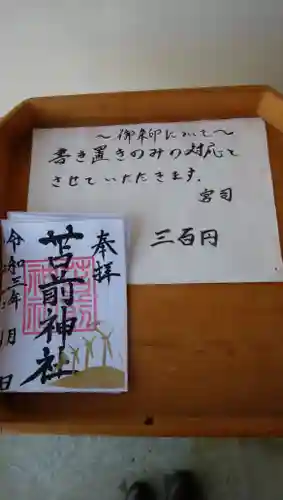 ～御朱印について～
書き置きのみの対応と
させていただきます.
宮司
三百円
奉拝
苫前神社
令和三年
月
日